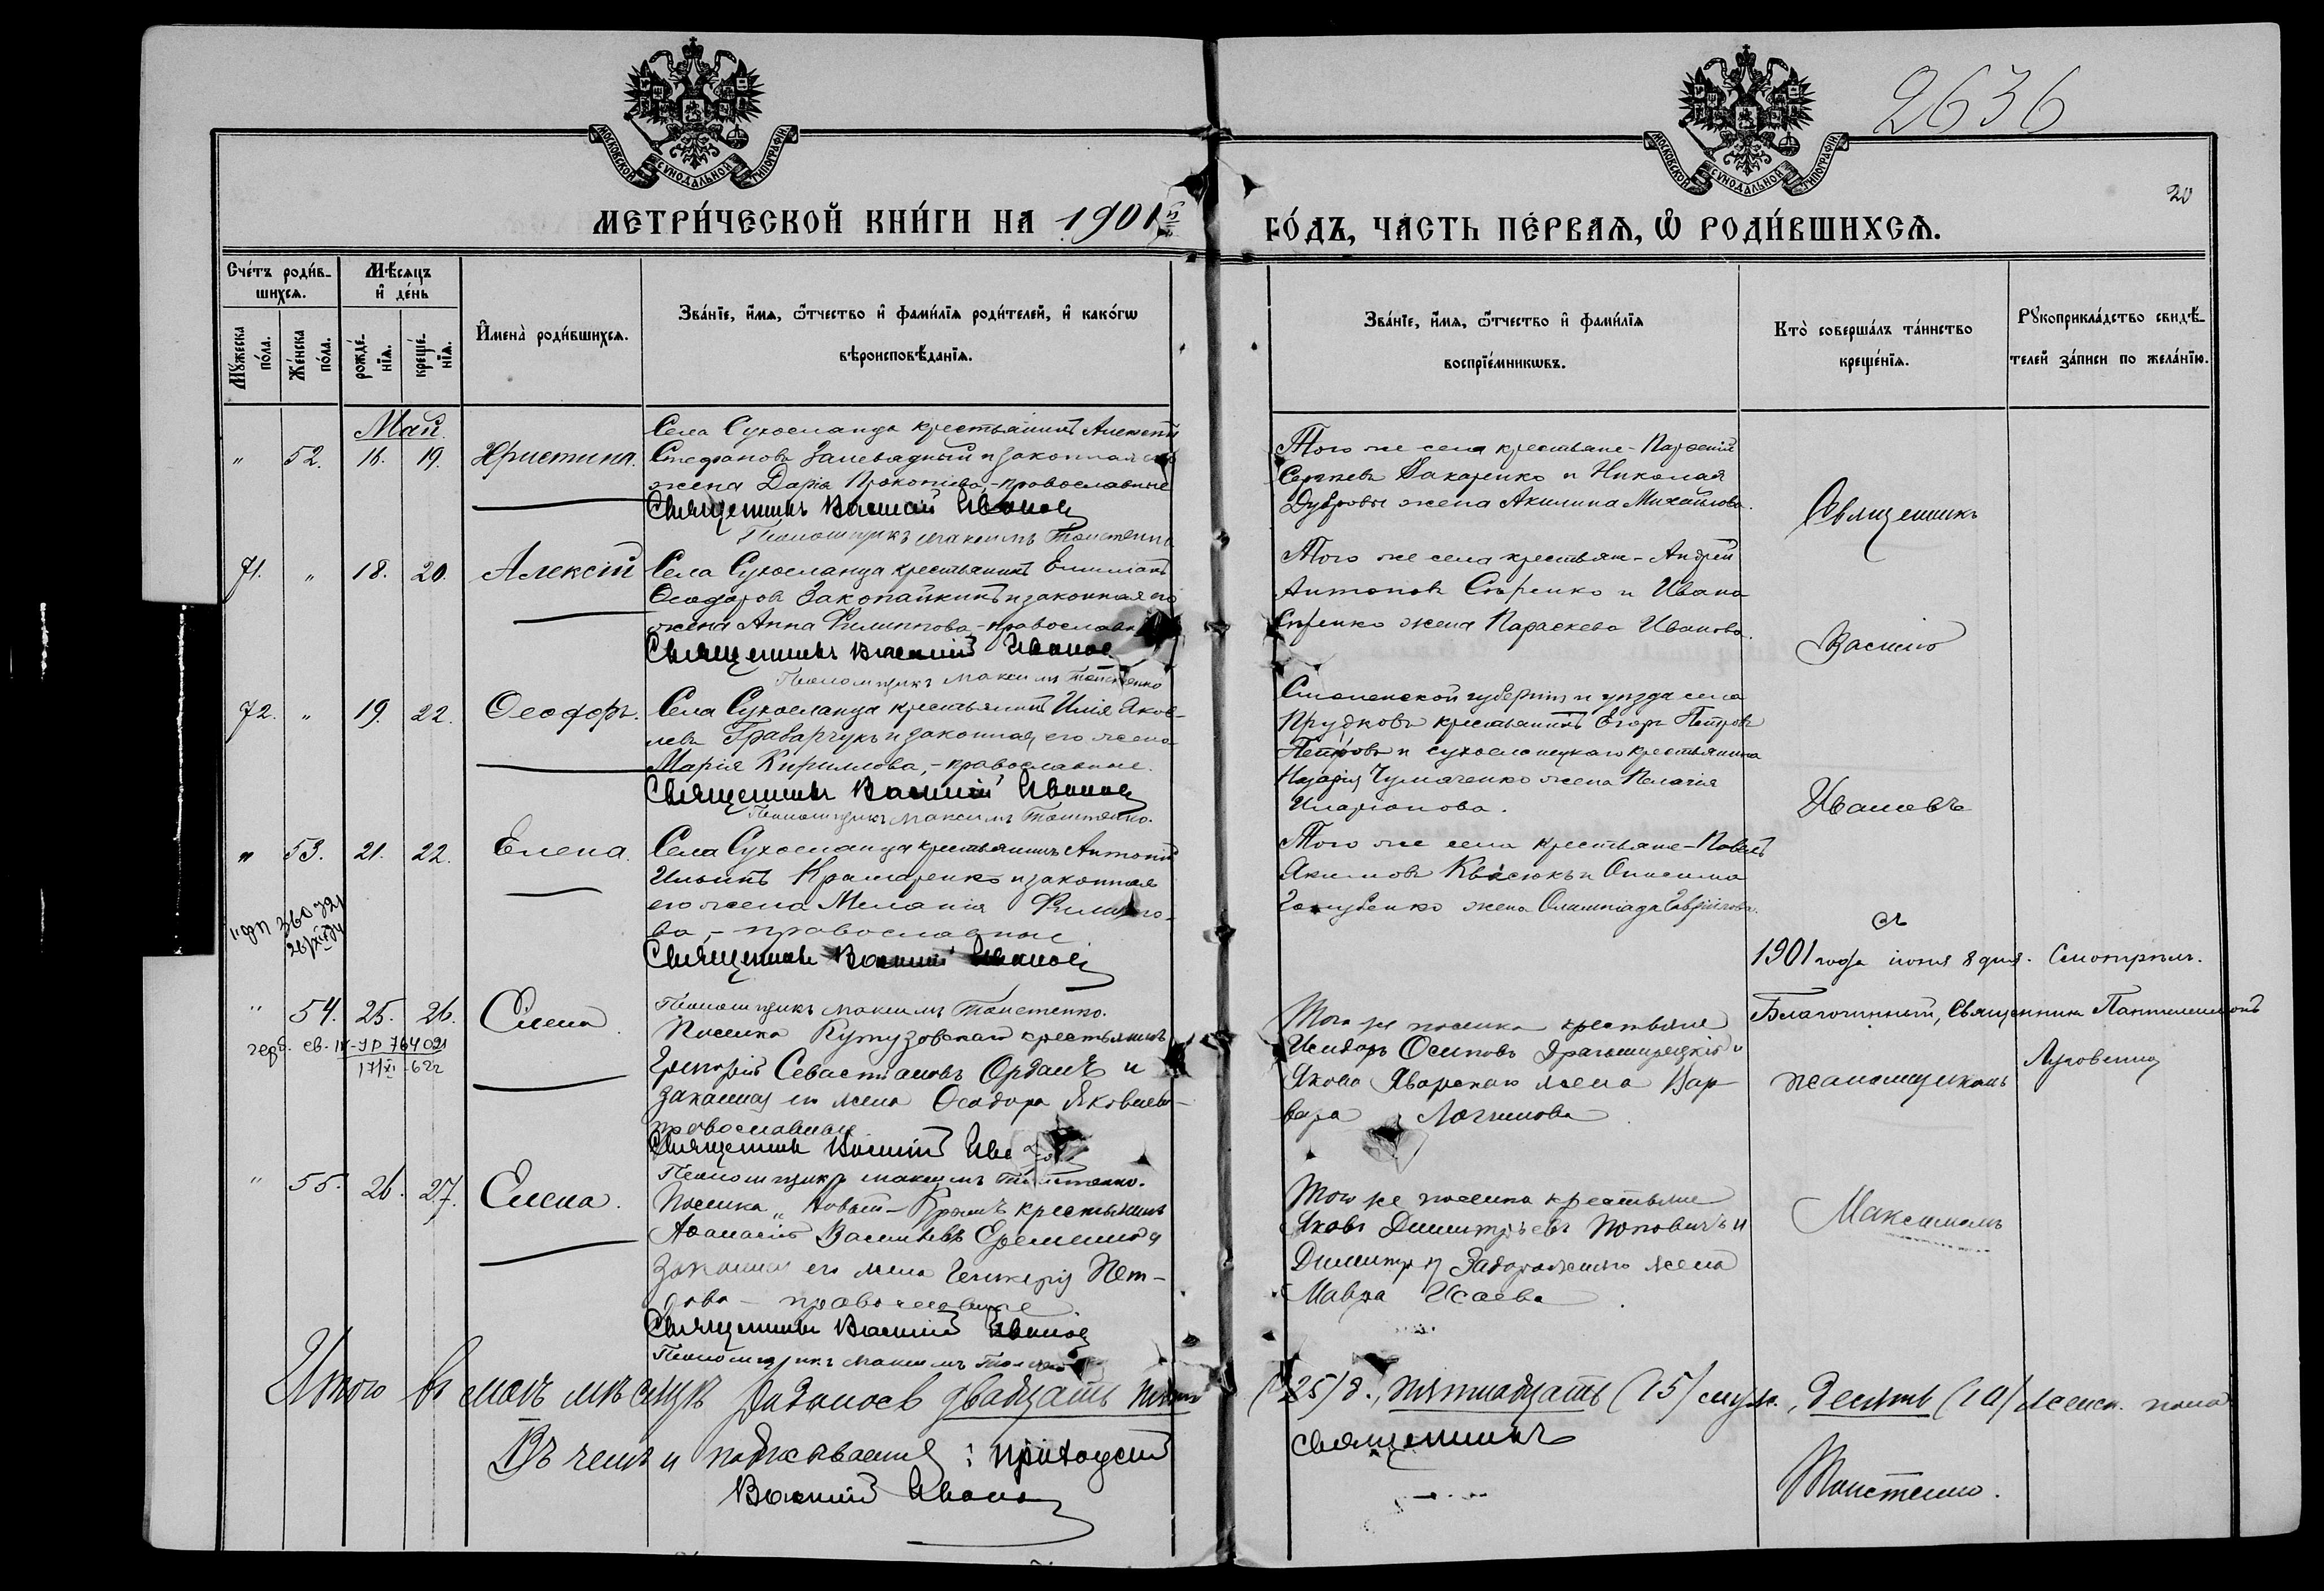 2636
20
МОСКОВСКОЙ СѴНОДАЛЬНОЙ ТИПОГРАФІИ
МОСКОВСКОЙ СѴНОДАЛЬНОЙ ТИПОГРАФІИ
МЕТРИ́ЧЕСКОЙ КНИ́ГИ НА 1901й
ГО́ДЪ, ЧА́СТЬ ПЕ́РВАѦ, Ѽ РОДИ́ВШИХСѦ.
Сче́тъ роди́в-
шихсѧ.
Мꙋ́жеска по́ла.
Же́нска по́ла.
Мѣ́сѧцъ и҆ де́нь
рожде́-нїѧ.
креще́-нїѧ.
И҆мена̀ роди́вшихсѧ.
Зва́нїе, и҆́мѧ, ѻ҆́тчество и҆ фами́лїѧ роди́телей, и҆ како́гѡ
вѣроисповѣ́данїѧ.
Зва́нїе, и҆́мѧ, ѻ҆́тчество и҆ фами́лїѧ
воспрїе́мникѡвъ.
Кто̀ соверша́лъ та́инство
креще́нїѧ.
Рꙋкоприкла́дство свидѣ́-
телей за́писи по жела́нїю.
Май.
" 52. 18. 19. Христина.
Села Сухоеланца крестьянинъ Алексѣй
Стефановъ и законная его
жена Дарія Прокопіева,-православные
Священникъ Василій Ивановъ
Псаломщикъ Максимъ Толстенко
Того же села крестьяне - Парѳеній
Сергѣевъ Захаренко и Николая
Дубровы жена Акилина Михайлова.
Священникъ
71. " 18. 20. Алексій
Села Сухоеланца крестьянинъ Емиліанъ
Ѳеодоровъ Закопайкинъ и законная его
жена Анна Филиппова - православные
Священникъ Василій Ивановъ
Псаломщикъ Максимъ Толстенко
Того же села крестьян - Андрей
Антоновъ Сѣренко и Ивана
Сѣренко жена Параскева Иванова.
Василій
72. " 19. 22. Ѳеодоръ.
Села Сухоеланца крестьянинъ Илія Яков-
левъ Граварчукъ и законная его жена
Марія Кириллова,-православные.
Священникъ Василій Ивановъ
Псаломщикъ Максимъ Толстенко.
Смоленской губерніи и уѣзда села
Прудковъ крестьянинъ Егоръ Петровъ
Петровъ и сухоеланецкаго крестьянина
Назарія Чумаченко жена Пелагія
Иларіонова.
Ивановъ
" 53. 21. 22. Елена.
Села Сухоеланца крестьянинъ Антоній
Ильинъ Крамаренко и законная
его жена Меланія Филиппо-
ва,- православные
Священникъ Василій Ивановъ
Псаломщикъ Максимъ Толстенко.
Того же села крестьяне - Павелъ
Акимовъ Квасюкъ и Онисима
Голубенко жена Олимпіада Гавріилова.
съ
1901 года іюня 8 дня. Смотрѣлъ.
Благочинный, Священникъ Пантелеимонъ
360721
" 54. 25. 26. Елена.
764021
17/XI-62г
Поселка Кутузовскаго крестьянинъ
Григорій Севастіановъ Орданъ и
законная его жена Ѳеодора Яковлева-
православные
Священникъ Василій Ивановъ
Псаломщикъ Максимъ Толстенко.
Того же поселка крестьяне
Исидоръ Осиповъ и
Якова Яворскаго жена Вар-
вара Логинова.
псаломщикомъ
" 55. 26. 27. Елена.
Поселка "Новый-Крымъ" крестьянинъ
Аѳанасій Васильевъ Еременко и
законная его жена Гликерія Пет-
рова - православные.
Священникъ Василій Ивановъ
Псаломщикъ Максимъ Толстенко
Того же поселка крестьяне
Яковъ Димитріевъ Поповичъ и
Димитрія Задорожнаго жена
Мавра Исаева.
Максимомъ
Итого въ маѣ мѣсяцѣ родилось двадцать пять
(25) д., пятнадцать (15) муж., десять (10) женск. пола
Въ чемъ и подписываемся: приходскій
священникъ
Василій Ивановъ
Толстенко.